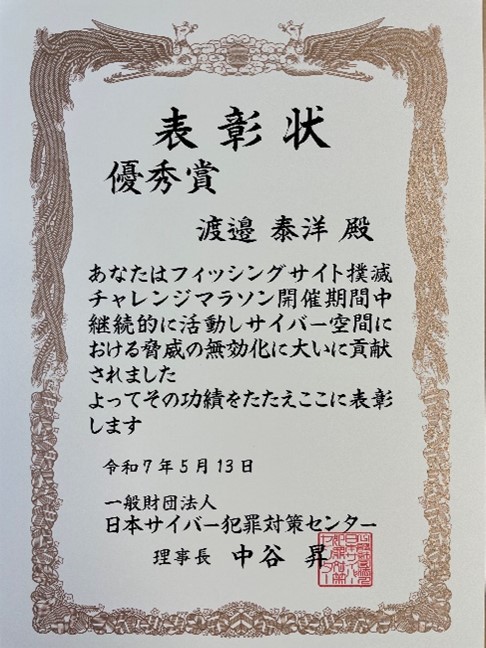 表彰状
優秀賞
渡邉 泰洋 殿
あなたはフィッシングサイト撲滅
チャレンジマラソン開催期間中
継続的に活動しサイバー空間に
おける脅威の無効化に大いに貢献
されました
よってその功績をたたえここに表彰
します
令和7年5月13日
一般財団法人
日本サイバー犯罪対策センター
理事長 中谷 昇